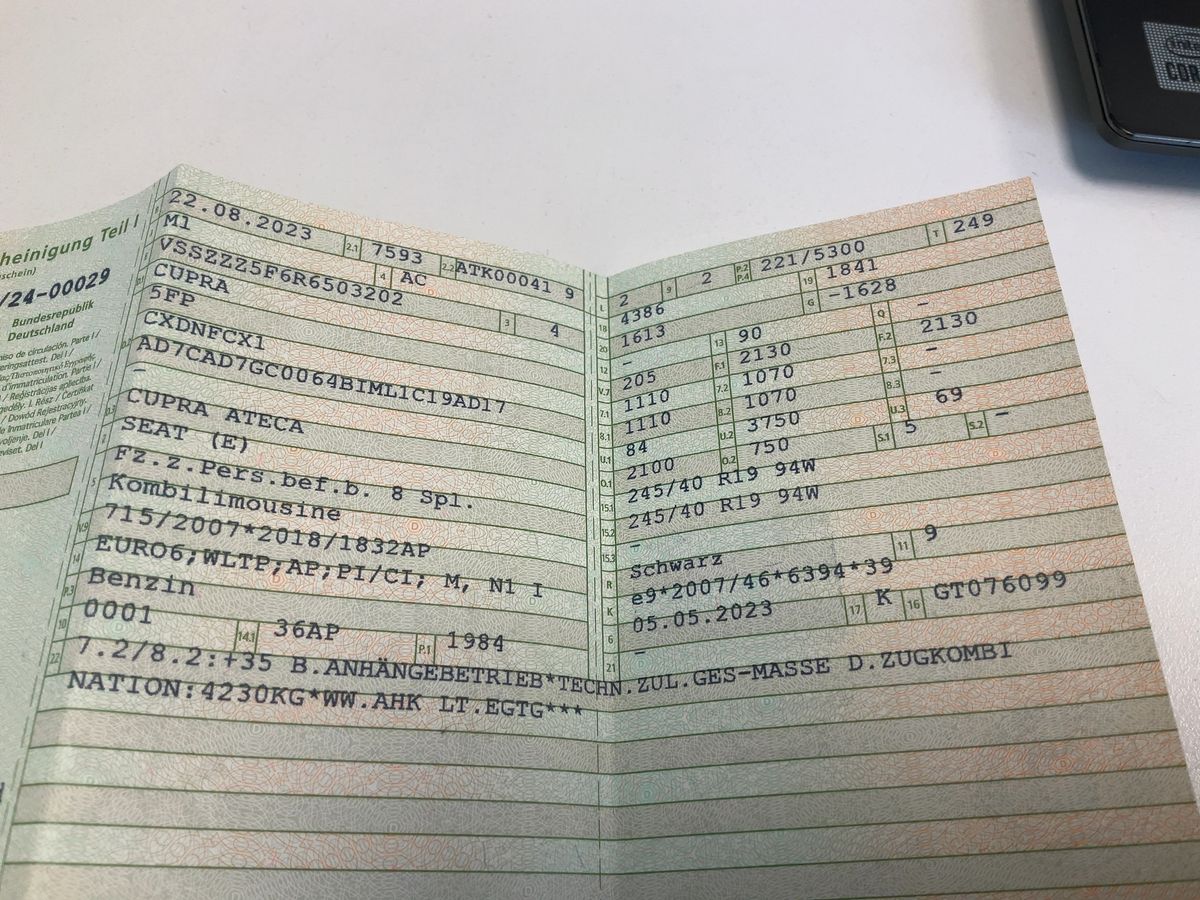 heinigung Teil I
schein)
/24-00029
Bundesrepublik
Deutschland
22.08.2023 2.1 7593 2.2 ATK00041 9
M1 4 AC
VSSZZZ5F6R6503202 3 4
CUPRA
5FP
CXDNFCX1
AD7CAD7GC0064BIML1C19AD17
–
CUPRA ATECA
SEAT (E)
Fz.z.Pers.bef.b. 8 Spl.
Kombilimousine
715/2007*2018/1832AP
EURO6;WLTP;AP;PI/CI; M, N1 I
Benzin
0001 14.1 36AP P.1 1984
L 2 9 2 P.2 P.4 221/5300 T 249
18 4386 19 1841
20 1613 G -1628
12 – 13 90 Q –
V.7 205 F.1 2130 F.2 2130
7.1 1110 7.2 1070 7.3 –
8.1 1110 8.2 1070 8.3 –
U.1 84 U.2 3750 U.3 69
O.1 2100 O.2 750 S.1 5 S.2 –
15.1 245/40 R19 94W
15.2 245/40 R19 94W
15.3 –
R Schwarz 11 9
K e9*2007/46*6394*39
6 05.05.2023 17 K 16 GT076099
21 –
22 7.2/8.2:+35 B.ANHÄNGEBETRIEB*TECHN.ZUL.GES-MASSE D.ZUGKOMBI
NATION:4230KG*WW.AHK LT.EGTG***